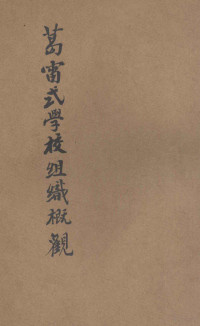 葛雷式學校組織概觀